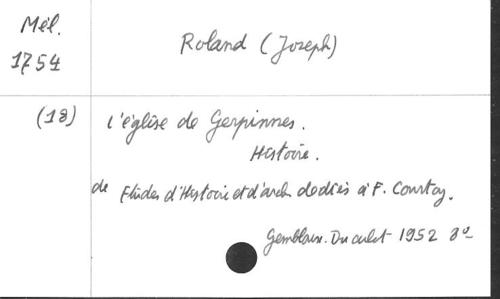 Mél.
1754
Roland (Joseph)
(18)
L'église de Gerpinnes.
Histoire.
de Etudes d'Histoire et d'arch dediés à F. Courtoy.
Gembloux. Duculot 1952 8º